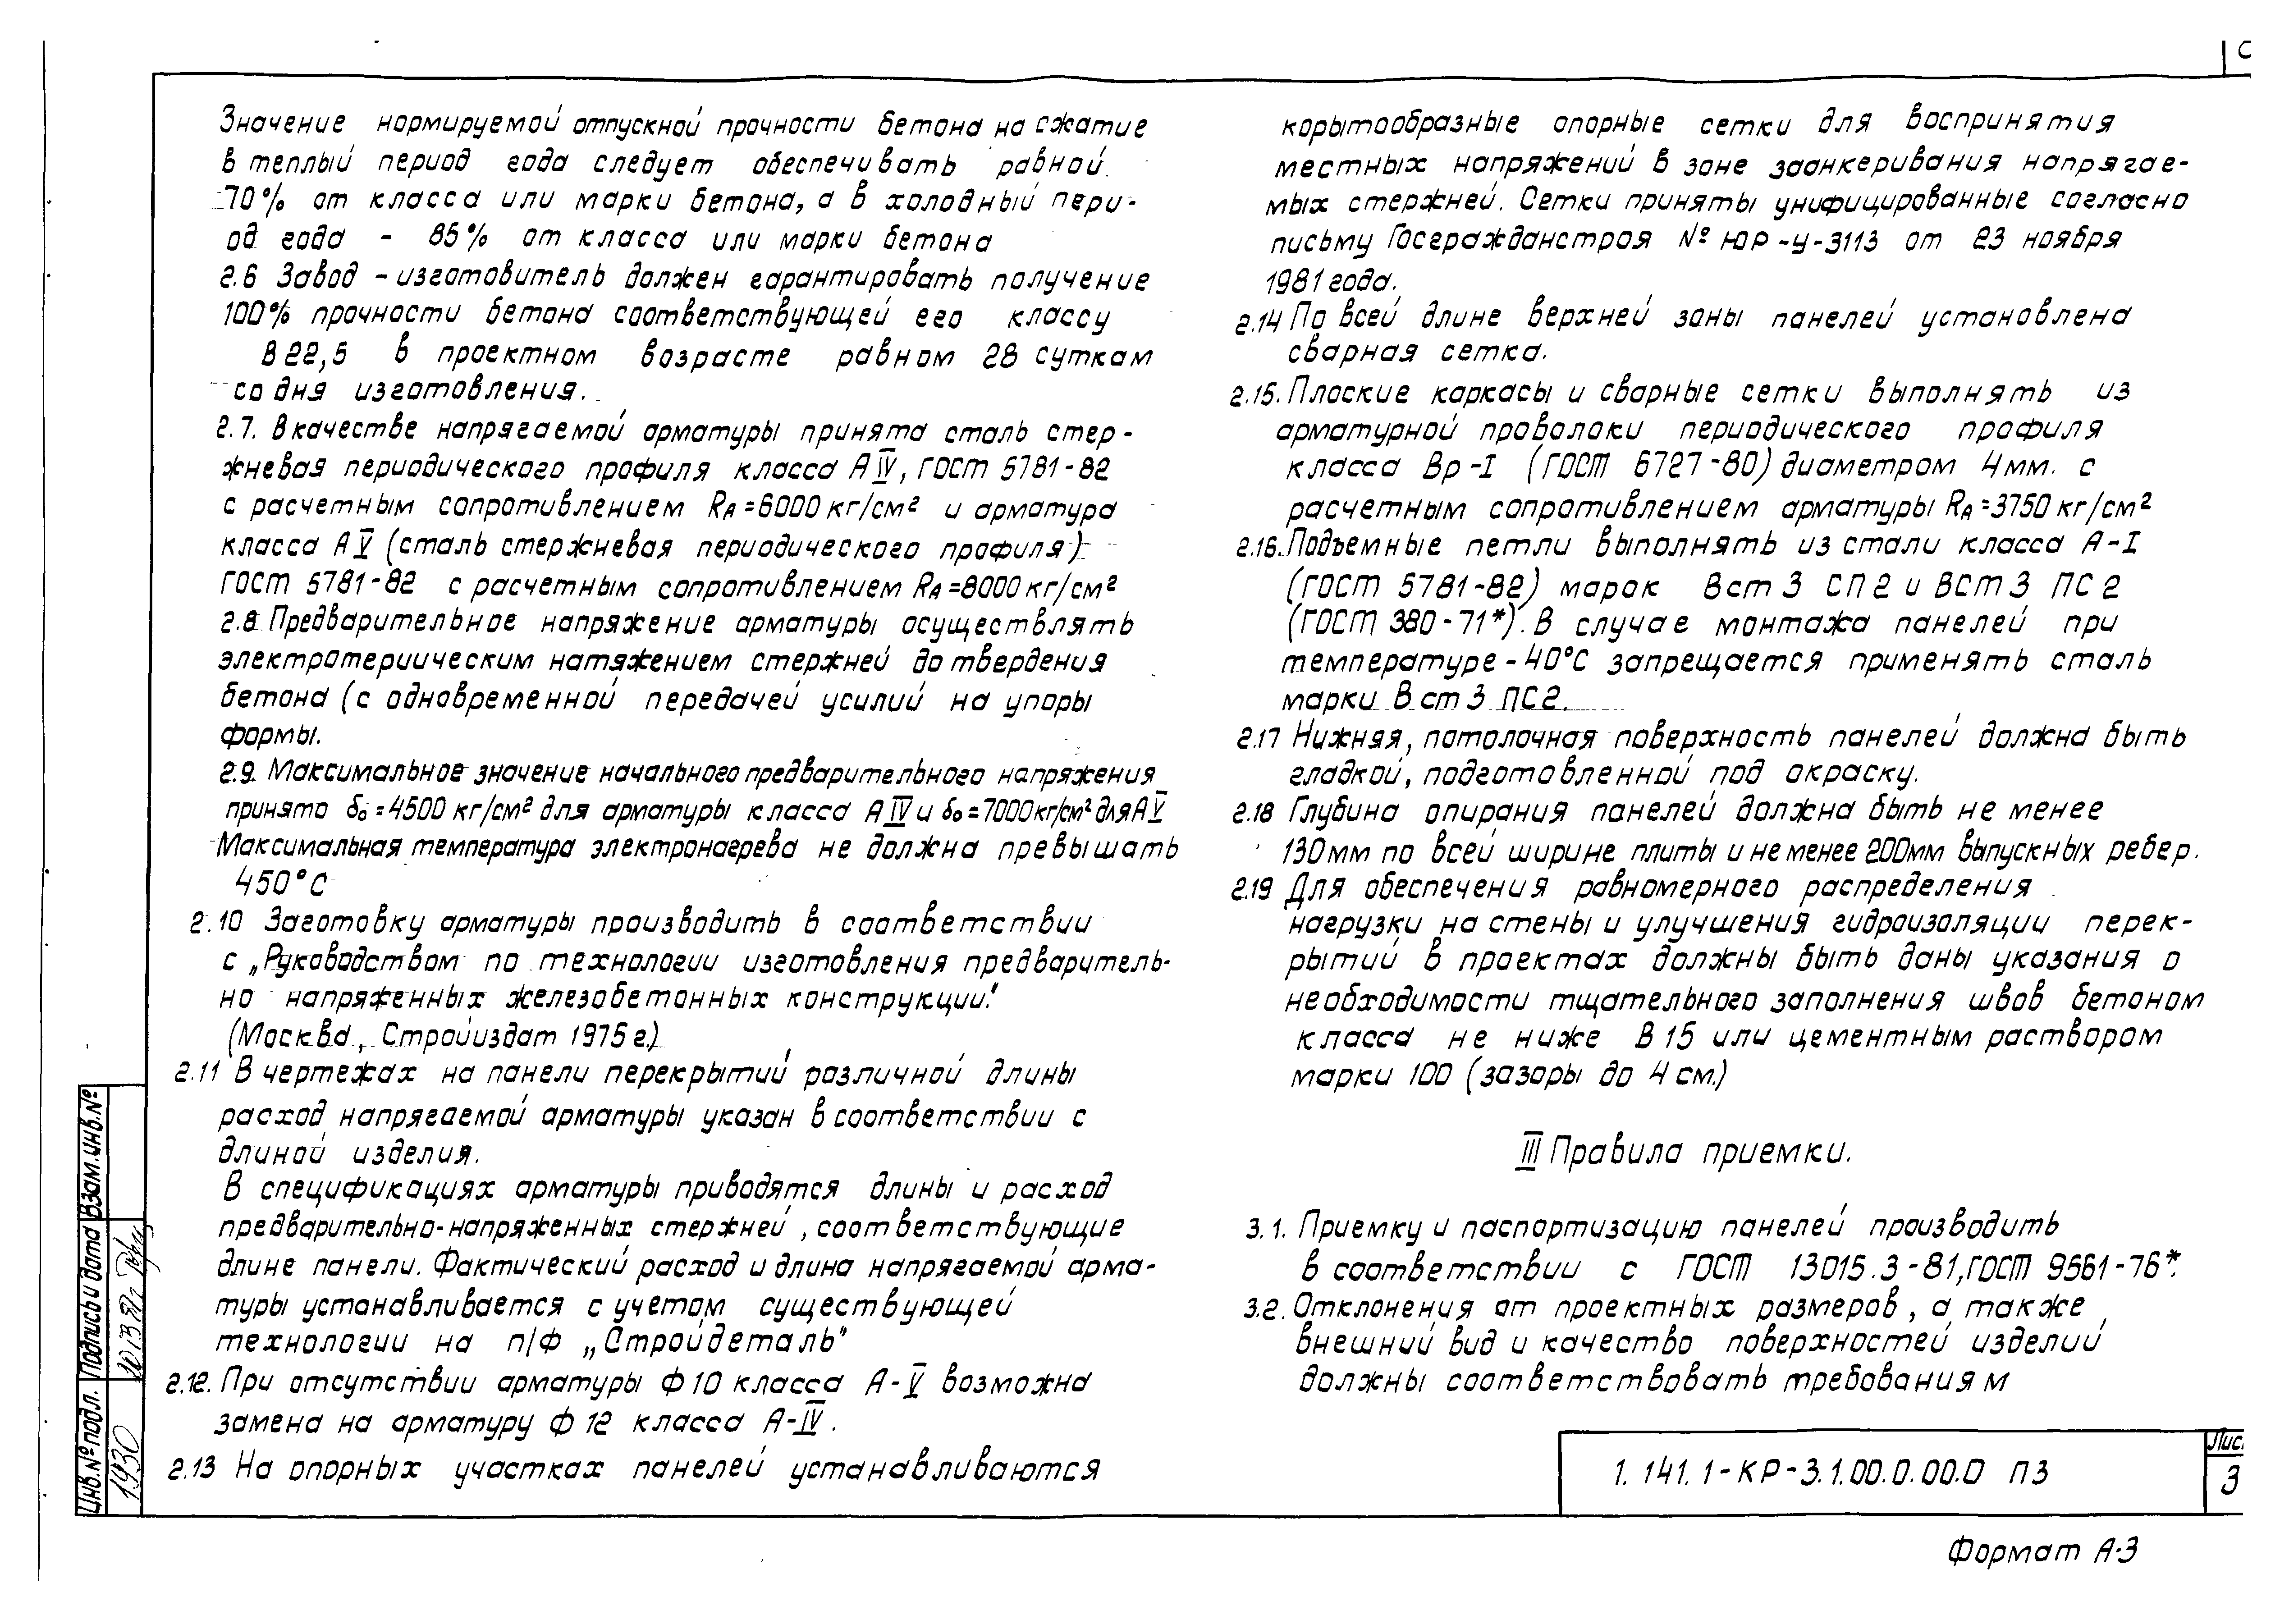 С
Значение нормируемой отпускной прочности бетона на сжатие
в теплый период года следует обеспечивать равной
70% от класса или марки бетона, а в холодный пери-
од года - 85% от класса или марки бетона
2.6 Завод - изготовитель должен гарантировать получение
100% прочности бетона соответствующей его классу
В 22,5 в проектном возрасте равном 28 суткам
со дня изготовления.
2.7. В качестве напрягаемой арматуры принята сталь стер-
жневая периодического профиля класса А IV, ГОСТ 5781-82
с расчетным сопротивлением RА=6000 кг/см² и арматура
класса А V (сталь стержневая периодического профиля)
ГОСТ 5781-82 с расчетным сопротивлением RА=8000 кг/см²
2.8 Предварительное напряжение арматуры осуществлять
электротермическим натяжением стержней до твердения
бетона (с одновременной передачей усилий на упоры
формы.
2.9. Максимальное значение начального предварительного напряжения
принято б₀=4500 кг/см² для арматуры класса А IV и б₀=7000 кг/см² для А V
Максимальная температура электронагрева не должна превышать
450°С
2.10 Заготовку арматуры производить в соответствии
с „Руководством по технологии изготовления предваритель-
но напряженных железобетонных конструкции."
(Москва, Стройиздат 1975 г.)
2.11 В чертежах на панели перекрытий различной длины
расход напрягаемой арматуры указан в соответствии с
длиной изделия.
В спецификациях арматуры приводятся длины и расход
предварительно-напряженных стержней, соответствующие
длине панели. Фактический расход и длина напрягаемой арма-
туры устанавливается с учетом существующей
технологии на п/ф „Стройдеталь"
2.12. При отсутствии арматуры Ф 10 класса А-V возможна
замена на арматуру Ф 12 класса А-IV.
2.13 На опорных участках панелей устанавливаются
корытообразные опорные сетки для восприятия
местных напряжений в зоне заанкеривания напрягае-
мых стержней. Сетки приняты унифицированные согласно
письму Госгражданстроя № ЮР-У-3113 от 23 ноября
1981 года.
2.14 По всей длине верхней зоны панелей установлена
сварная сетка.
2.15. Плоские каркасы и сварные сетки выполнять из
арматурной проволоки периодического профиля
класса Вр-I (ГОСТ 6727-80) диаметром 4 мм. с
расчетным сопротивлением арматуры RА=3750 кг/см²
2.16. Подъемные петли выполнять из стали класса А-I
(ГОСТ 5781-82) марок Вст 3 СП 2 и ВСТ 3 ПС 2
(ГОСТ 380-71*). В случае монтажа панелей при
температуре - 40°С запрещается применять сталь
марки В ст 3 ПС 2.
2.17 Нижняя, потолочная поверхность панелей должна быть
гладкой, подготовленной под окраску.
2.18 Глубина опирания панелей должна быть не менее
130мм по всей ширине плиты и не менее 200мм выпускных ребер.
2.19 Для обеспечения равномерного распределения
нагрузки на стены и улучшения гидроизоляции перек-
рытий в проектах должны быть даны указания о
необходимости тщательного заполнения швов бетоном
класса не ниже В 15 или цементным раствором
марки 100 (зазоры до 4 см.)
III Правила приемки.
3.1. Приемку и паспортизацию панелей производить
в соответствии с ГОСТ 13015.3-81, ГОСТ 9561-76*.
3.2. Отклонения от проектных размеров, а также
внешний вид и качество поверхностей изделий
должны соответствовать требованиям
1.141.1-КР-3.1.00.0.00.0 ПЗ
Лис
3
Формат А-3
Взам.инв.№
Подпись и дата
Инв.№ подл.
1930